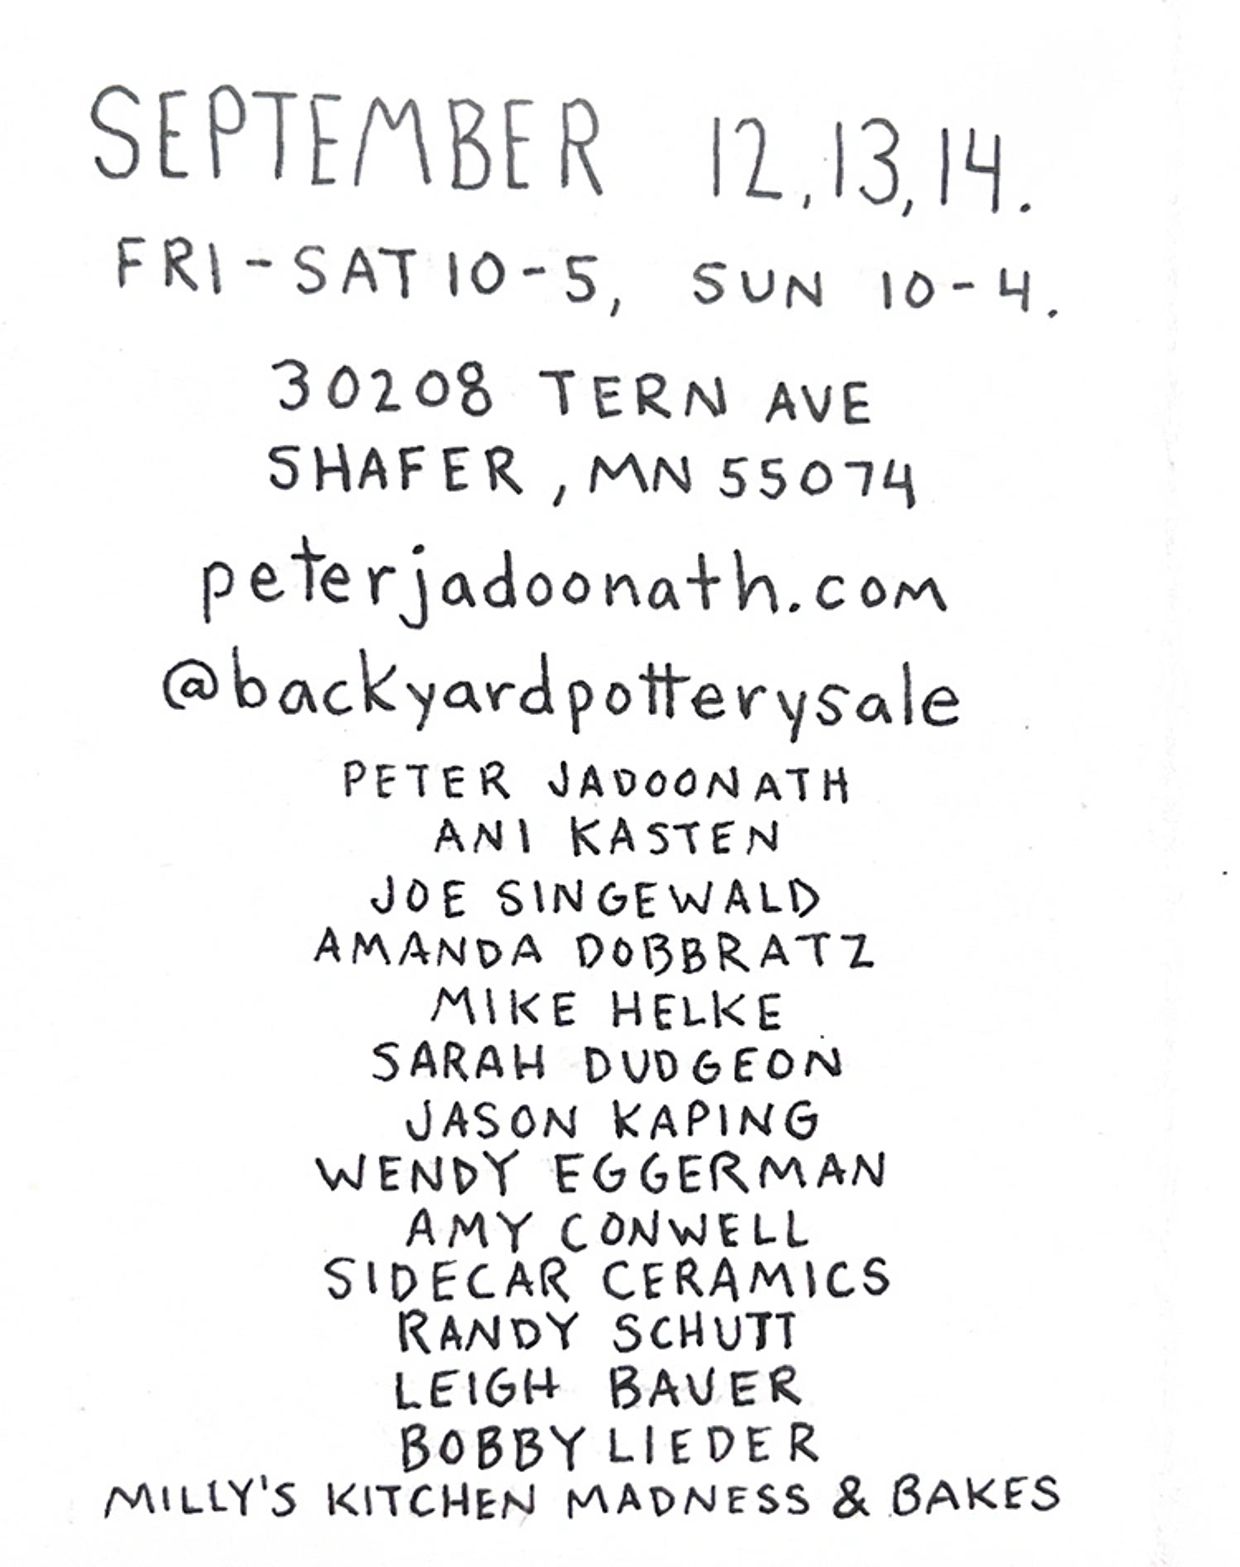 SEPTEMBER 12, 13, 14.
FRI-SAT 10-5, SUN 10-4.
30208 TERN AVE
SHAFER, MN 55074
peterjadoonath.com
@backyardpotterysale
PETER JADOONATH
ANI KASTEN
JOE SINGEWALD
AMANDA DOBBRATZ
MIKE HELKE
SARAH DUDGEON
JASON KAPING
WENDY EGGERMAN
AMY CONWELL
SIDECAR CERAMICS
RANDY SCHUTT
LEIGH BAUER
BOBBY LIEDER
MILLY'S KITCHEN MADNESS & BAKES